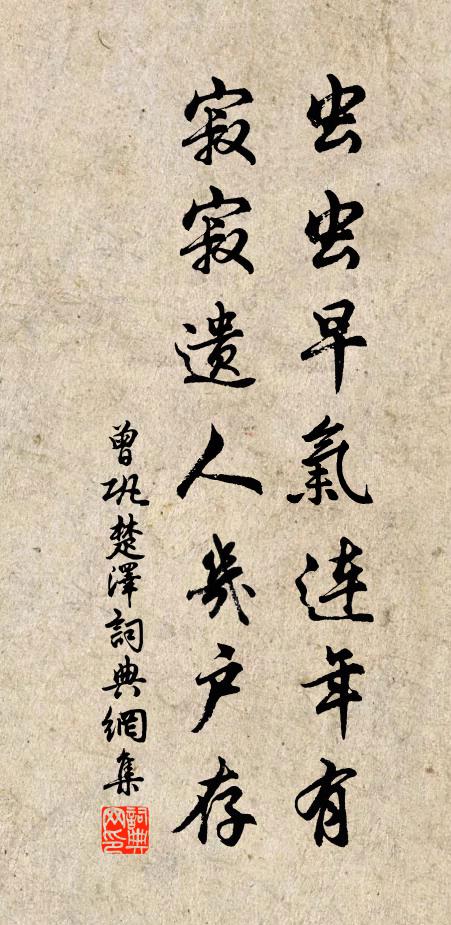 虫虫早氣連年有
寂寂遺人幾户存
曾巩楚澤詞典網集
詞典网印